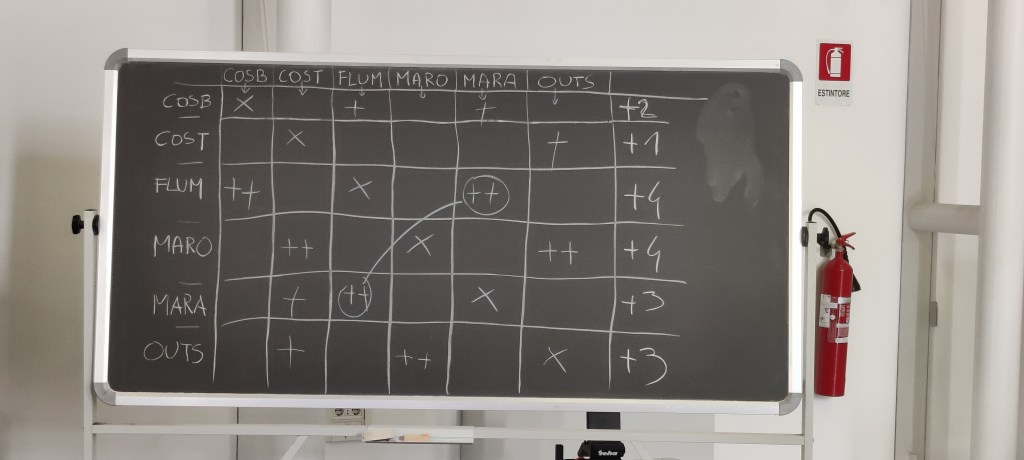 COSB COST FLUM MARO MARA OUTS
COSB X + + +2
COST X + +1
FLUM ++ X ++ +4
MARO ++ X ++ +4
MARA + ++ X +3
OUTS + ++ X +3
ESTINTORE